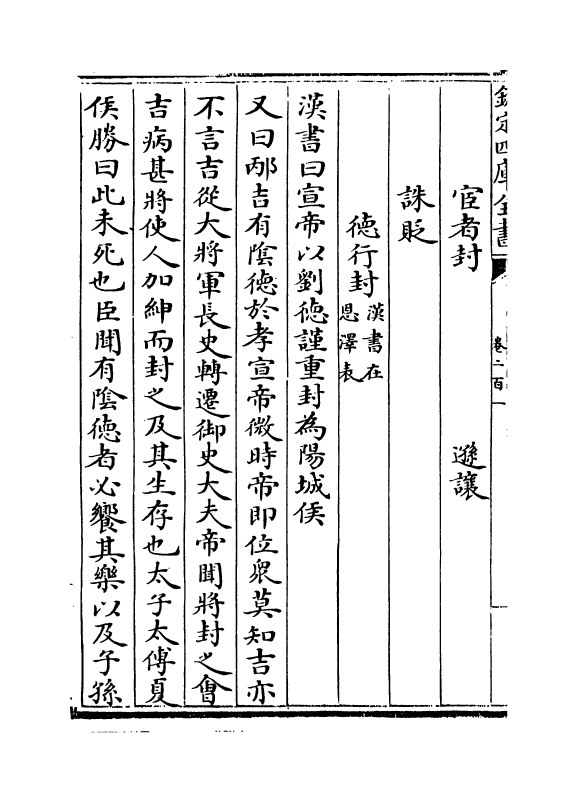 欽定四庫全書
卷二百一
宦者封 遜讓
誅貶
德行封漢書在恩澤表
漢書曰宣帝以劉徳謹重封為陽城侯
又曰邴吉有陰徳於孝宣帝微時帝即位衆莫知吉亦
不言吉從大將軍長史轉遷御史大夫帝聞將封之會
吉病甚將使人加紳而封之及其生存也太子太傅夏
侯勝曰此未死也臣聞有陰徳者必饗其樂以及子孫